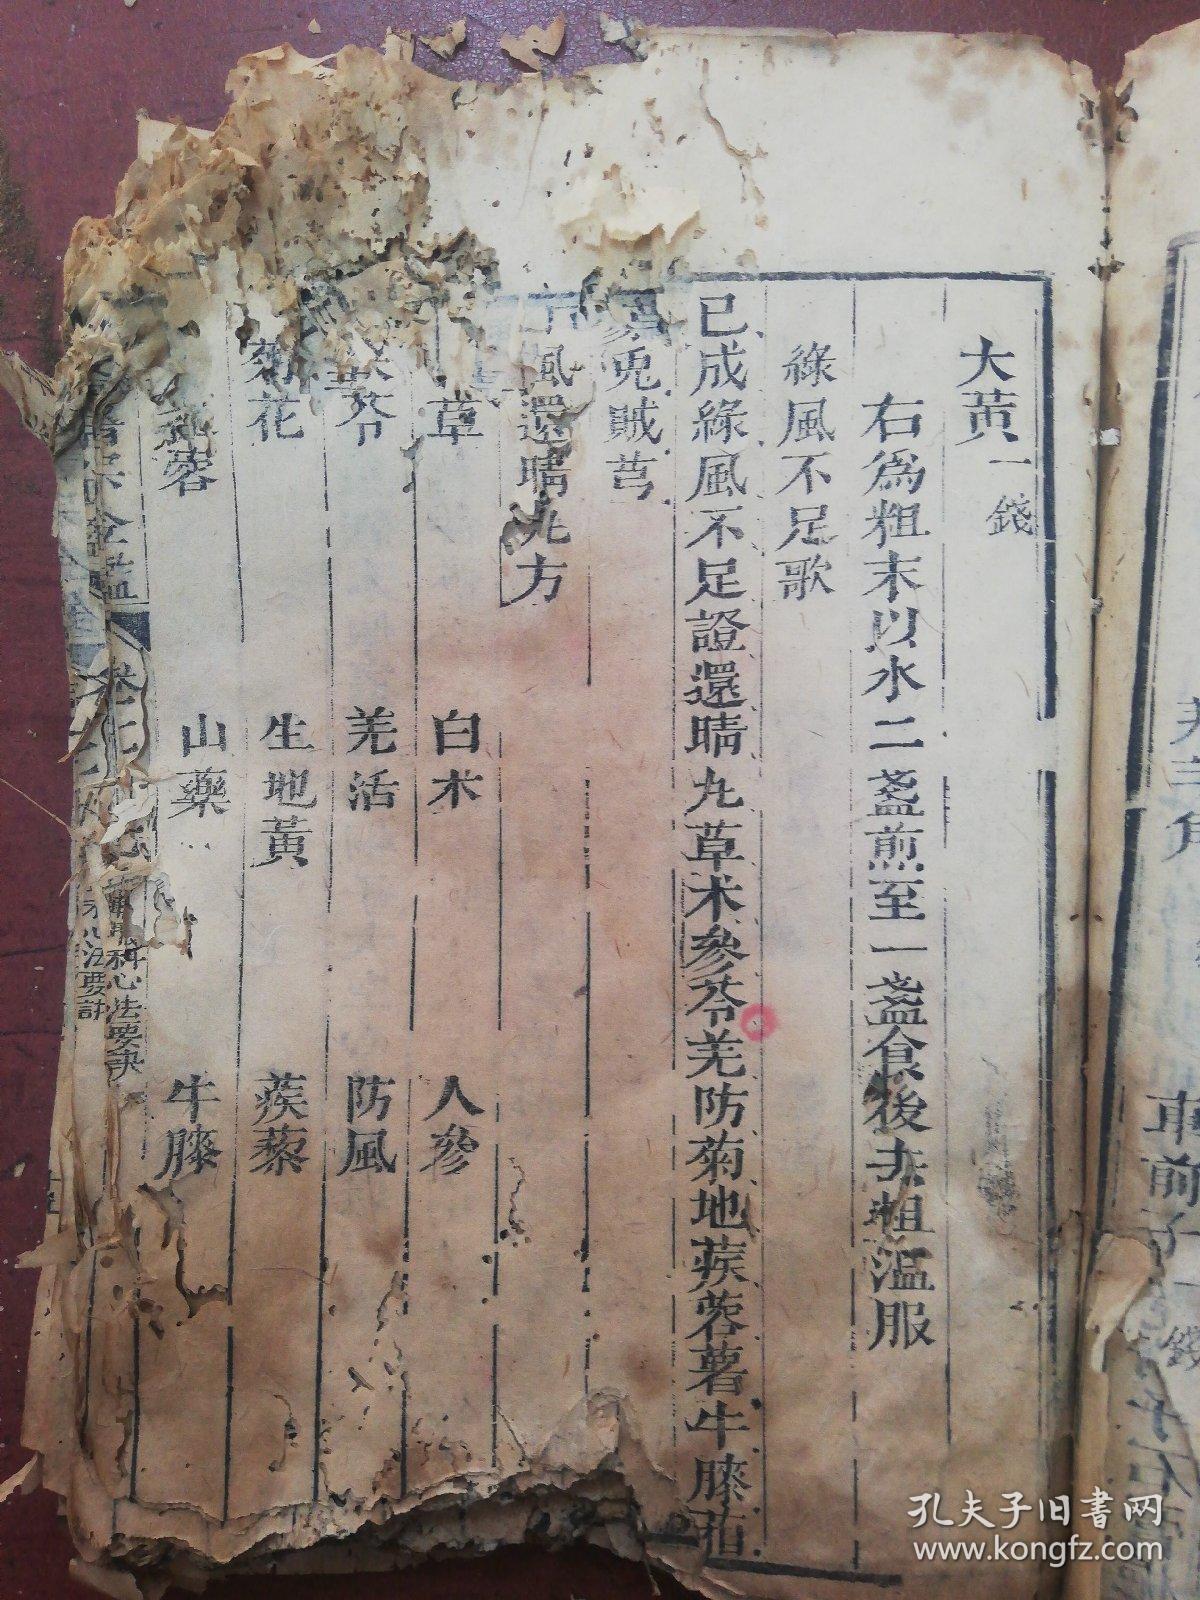 大黄一錢
右爲粗末以水二盞煎至一盞食後去粗溫服
綠風不足歌
已成綠風不足證還睛九草术參苓羌防菊地蒺蓉薯牛膝
兎賊芎
風還睛九方
草 白术 人參
苓 羌活 防風
菊花 生地黃 蒺藜
蓉 山藥 牛膝
金鑑 卷七 眼科心法要訣
車前子一錢
孔夫子旧书网
www.kongfz.com